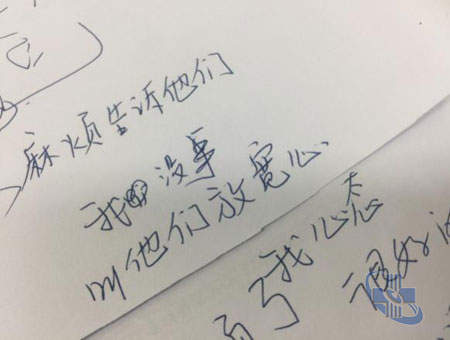 麻烦告诉他们
我没事
叫他们放宽心
我心态
很好